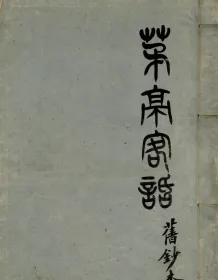 茅亭客話
舊鈔本